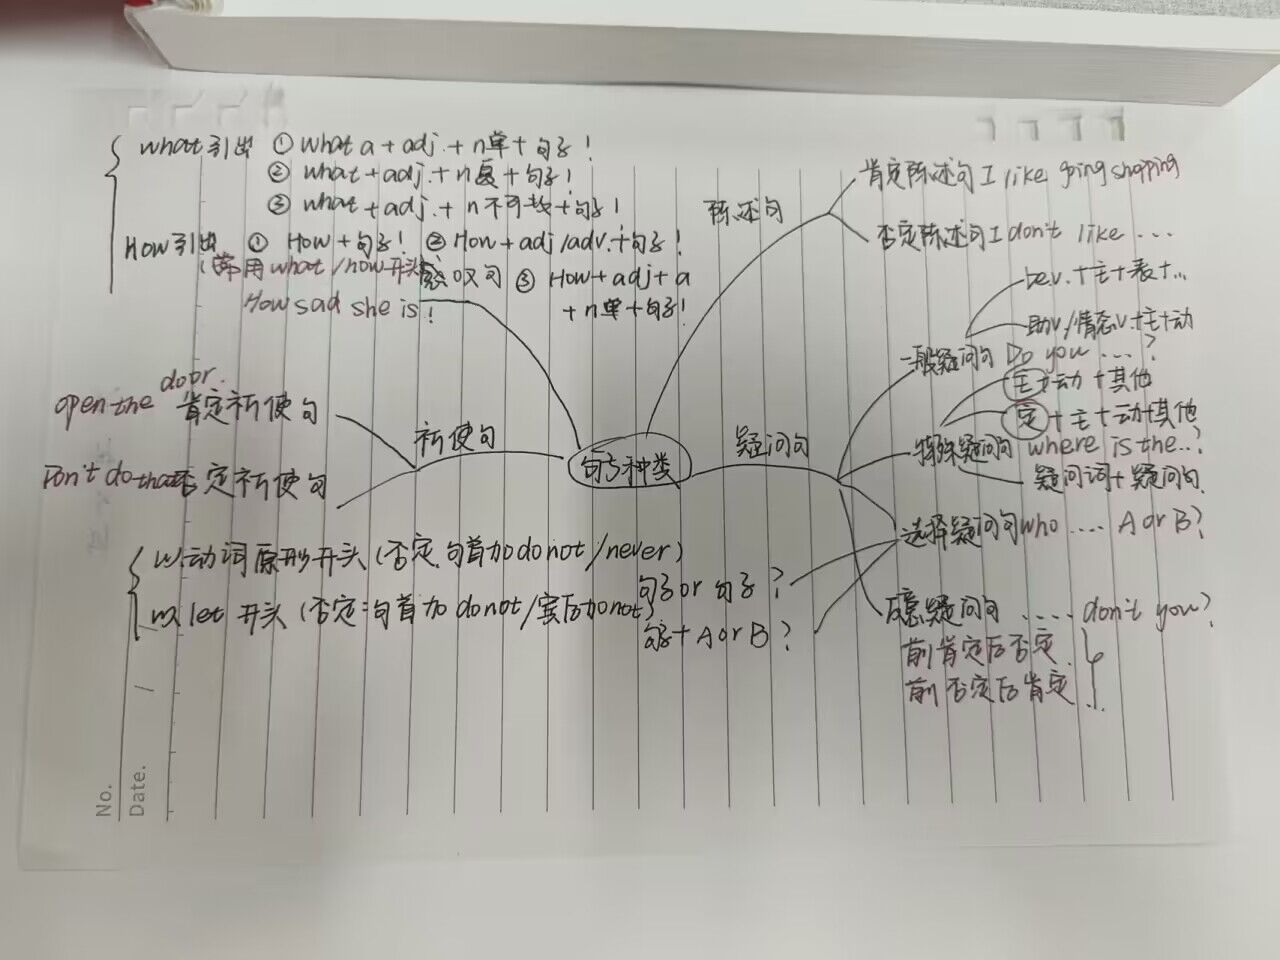 what引出 ① what a + adj. + n单 + 句子！
② what + adj. + n复 + 句子！
③ what + adj. + n不可数 + 句子！
How引出 ① How + 句子！ ② How + adj/adv. + 句子！
(常用what/how开头) 感叹句 ③ How + adj + a
+ n单 + 句子！
How sad she is！
陈述句
肯定陈述句 I like going shopping
否定陈述句 I don't like ...
be v. + 主 + 表 + ...
助v/情态v. + 主 + 动
一般疑问句 Do you ...?
主 + 动 + 其他
定 + 主 + 动 + 其他
特殊疑问句 where is the..?
疑问词 + 疑问句
疑问句
句子种类
祈使句
open the door.
肯定祈使句
Don't do that 否定祈使句
以动词原形开头 (否定.句首加do not/never)
以let开头 (否定:句首加 do not/宾后加not)
选择疑问句 who .... A or B?
句子 or 句子?
句子 + A or B?
反意疑问句 ..... don't you?
前肯定后否定
前否定后肯定
No.
Date. / /